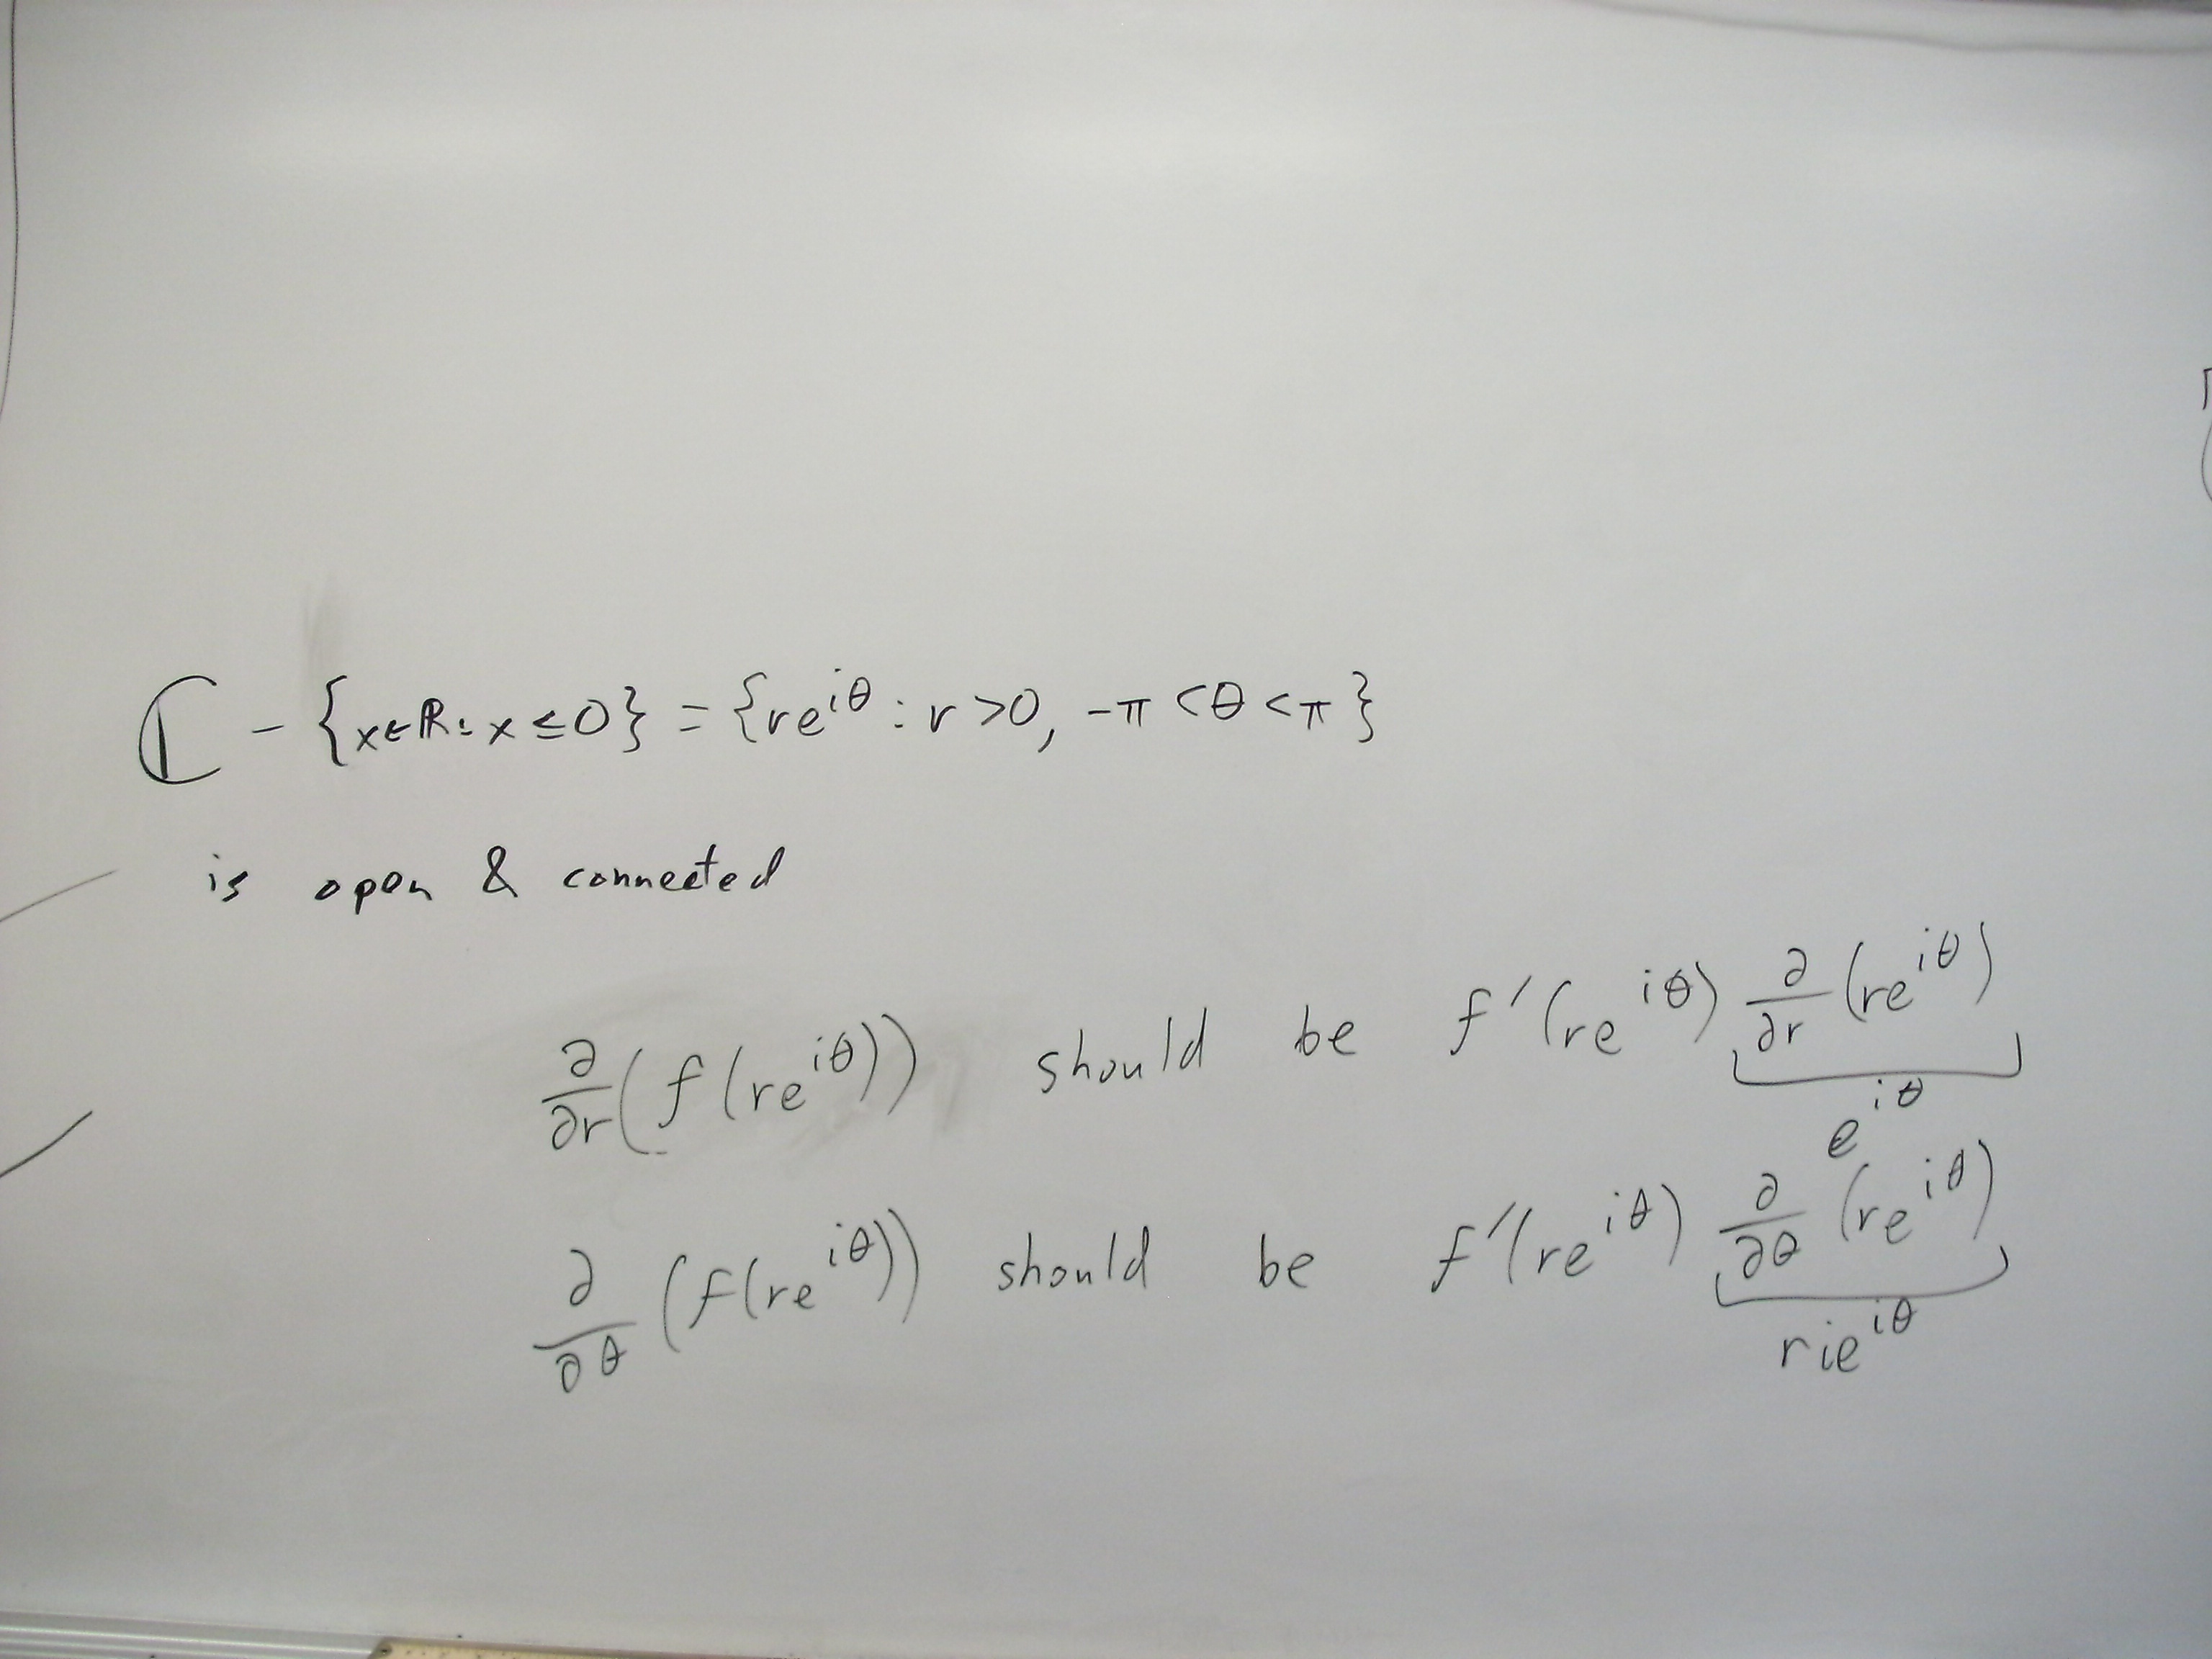 ℂ - {x∈ℝ: x ≤ 0} = {re^{iθ} : r > 0, -π < θ < π}
is open & connected
∂/∂r (f(re^{iθ})) should be f'(re^{iθ}) ∂/∂r (re^{iθ})
e^{iθ}
∂/∂θ (f(re^{iθ})) should be f'(re^{iθ}) ∂/∂θ (re^{iθ})
rie^{iθ}